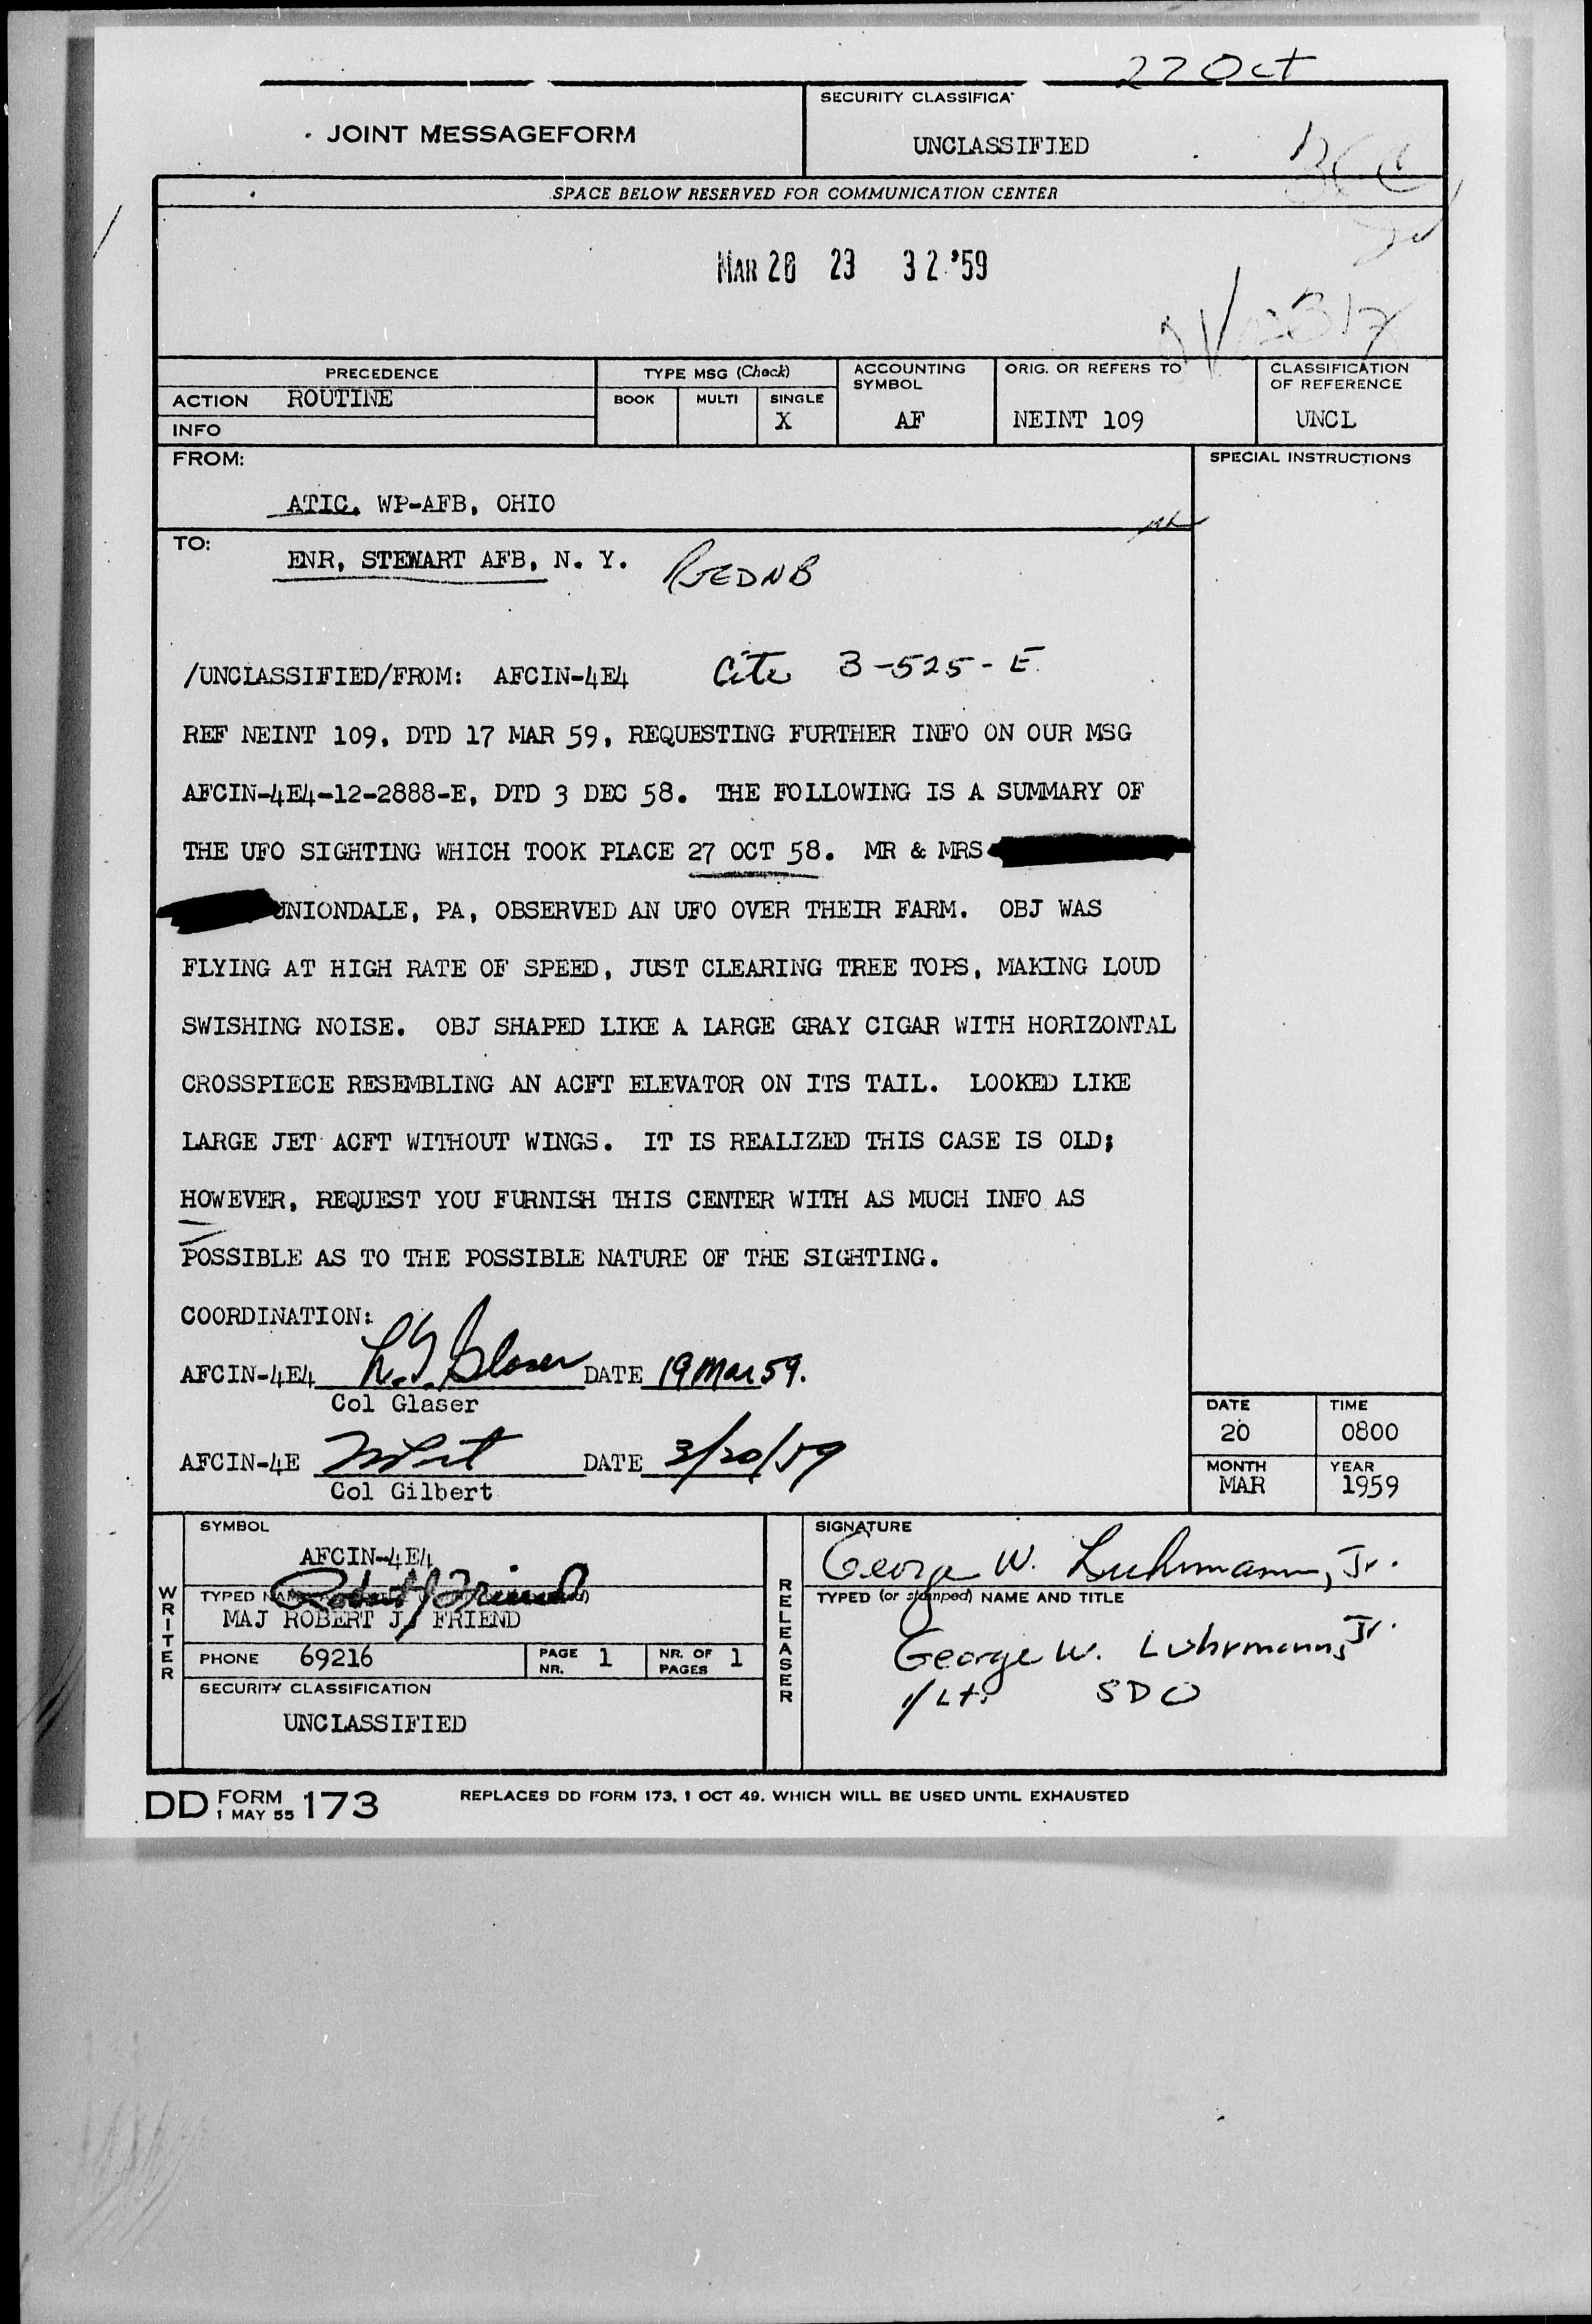 27 Oct
SECURITY CLASSIFICA
JOINT MESSAGEFORM
UNCLASSIFIED
SPACE BELOW RESERVED FOR COMMUNICATION CENTER
MAR 20 23 32 '59
PRECEDENCE
TYPE MSG (Check)
ACCOUNTING SYMBOL
ORIG. OR REFERS TO
CLASSIFICATION OF REFERENCE
ACTION ROUTINE
BOOK MULTI SINGLE
X AF NEINT 109 UNCL
INFO
FROM:
SPECIAL INSTRUCTIONS
ATIC, WP-AFB, OHIO
TO:
ENR, STEWART AFB, N. Y.
/UNCLASSIFIED/FROM: AFCIN-4E4 Cite 3-525-E
REF NEINT 109, DTD 17 MAR 59, REQUESTING FURTHER INFO ON OUR MSG
AFCIN-4E4-12-2888-E, DTD 3 DEC 58. THE FOLLOWING IS A SUMMARY OF
THE UFO SIGHTING WHICH TOOK PLACE 27 OCT 58. MR & MRS
UNIONDALE, PA, OBSERVED AN UFO OVER THEIR FARM. OBJ WAS
FLYING AT HIGH RATE OF SPEED, JUST CLEARING TREE TOPS, MAKING LOUD
SWISHING NOISE. OBJ SHAPED LIKE A LARGE GRAY CIGAR WITH HORIZONTAL
CROSSPIECE RESEMBLING AN ACFT ELEVATOR ON ITS TAIL. LOOKED LIKE
LARGE JET ACFT WITHOUT WINGS. IT IS REALIZED THIS CASE IS OLD;
HOWEVER, REQUEST YOU FURNISH THIS CENTER WITH AS MUCH INFO AS
POSSIBLE AS TO THE POSSIBLE NATURE OF THE SIGHTING.
COORDINATION:
AFCIN-4E4 L.G. Glaser DATE 19 Mar 59.
Col Glaser
AFCIN-4E DATE 3/20/59
Col Gilbert
DATE TIME
20 0800
MONTH YEAR
MAR 1959
SYMBOL
AFCIN-4E4
WRITER
TYPED
Robert J Friend
MAJ ROBERT J. FRIEND
PHONE 69216
PAGE NR. 1
NR. OF PAGES 1
SECURITY CLASSIFICATION
UNCLASSIFIED
RELEASER
SIGNATURE
George W. Luhrmann, Jr.
TYPED (or stamped) NAME AND TITLE
George W. Luhrmann, Jr.
1/Lt. SDO
DD FORM 1 MAY 55 173
REPLACES DD FORM 173, 1 OCT 49, WHICH WILL BE USED UNTIL EXHAUSTED